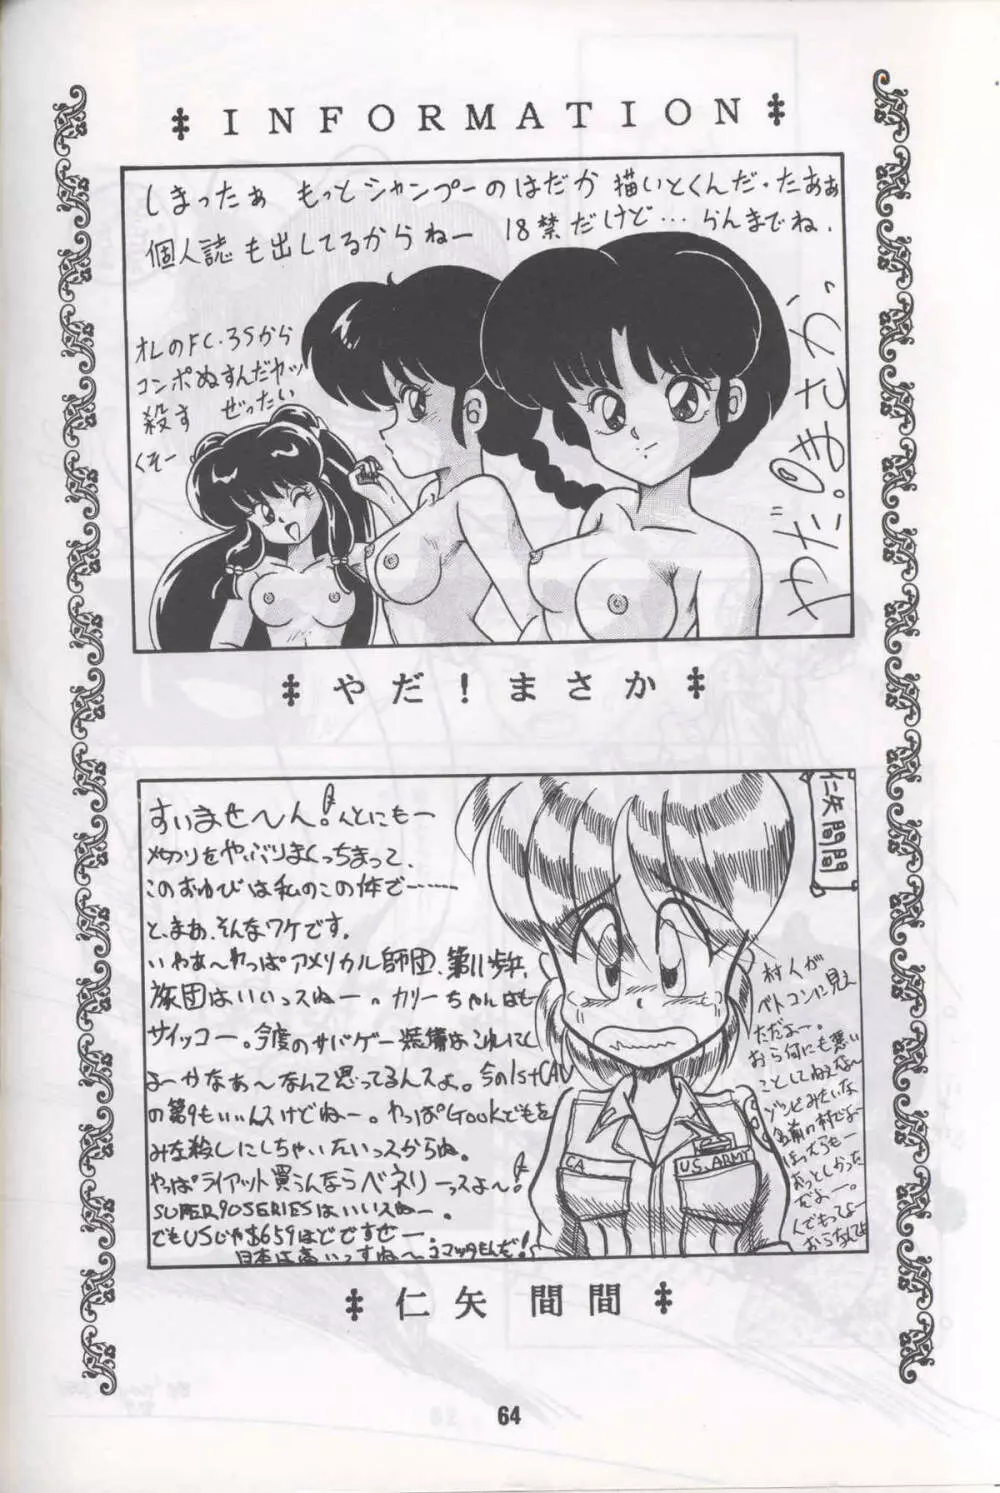 INFORMATION
しまったぁ もっとシャンプーのはだか描いとくんだ・たあぁ
個人誌も出してるからねー 18禁だけど…らんまでね.
オレのFC・3Sから
コンポぬすんだヤツ
殺す ぜったい
くそー
やだ!まさか
仁矢間間
すいませ〜ん!んとにもー
〆切りをやぶりまくっちまって、
このおわびは私のこの体で……
と、まあ、そんなワケです。
いやあ〜やっぱアメリカル師団、第11歩兵
旅団はいいっスねー。カリーちゃんはも
サイッコー。今度のサバゲー装備はこれにして
よーかなぁ〜なんて思ってるんスよ。今の1st CAV
の第9もいいんスけどねー。やっぱGookでもを
みな殺しにしちゃいたいっスからね。
やっぱライアット買うんならベネリーっスよ〜!
SUPER90SERIESはいいスねー。
でもUSじゃ$659ほどですぜー.
日本は高いっすね〜
村人が
ベトコンに見え
ただよー。
おら何にも悪い
ことしてねえな〜
ゾンビみたいな
名前の村でよー
おっとしかった
だよー。
んでもってよー
CA
US. ARMY
仁矢 間間
64